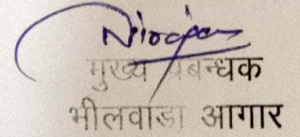 मुख्य प्रबन्धक
भीलवाडा आगार